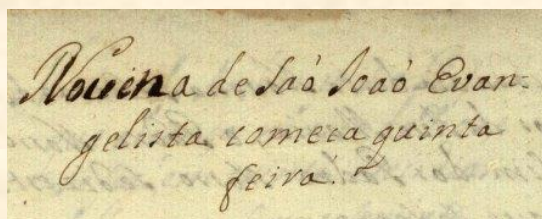 Novena de Saõ Joaõ Evan-
gelista comeca quinta
feira.